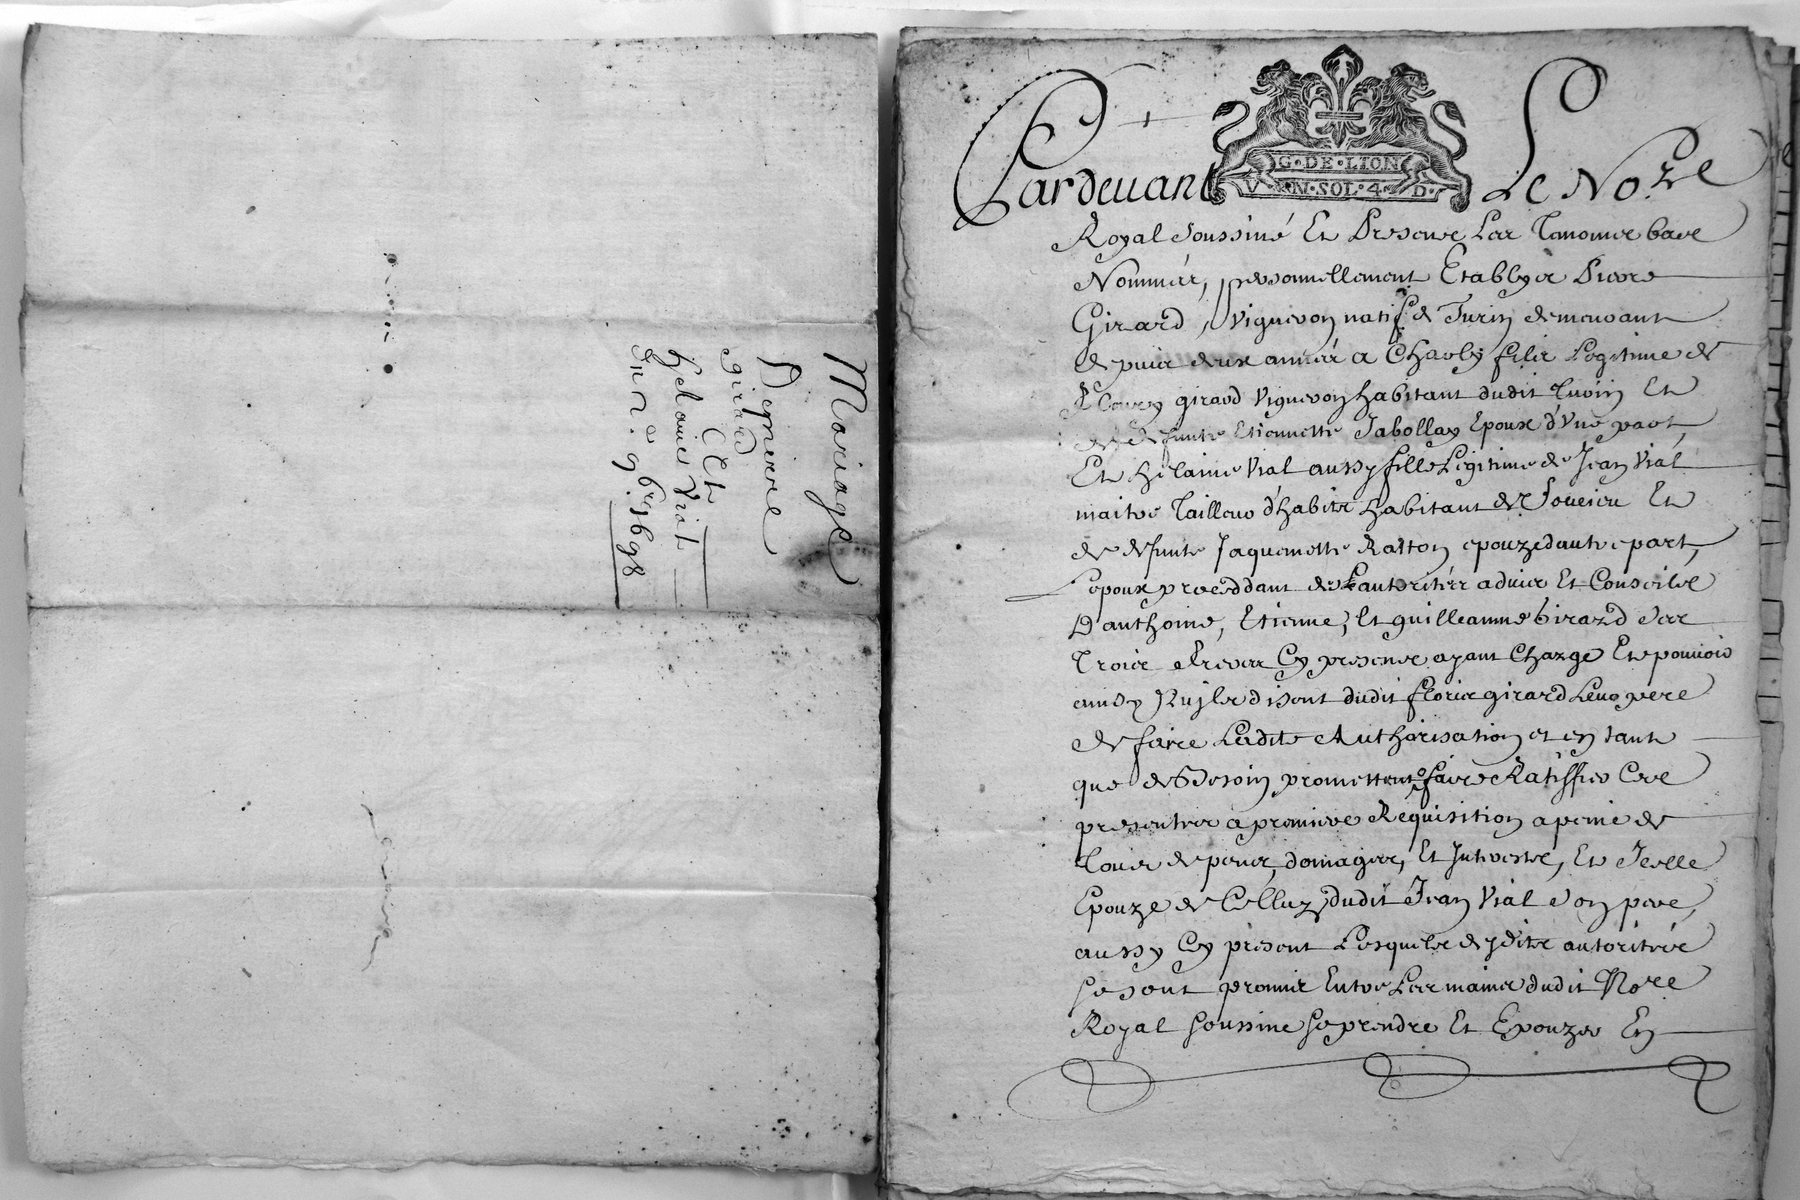 Mariage
De pierre
girard
Et
helaine Vial
du 2.e 9bre 1698
G·DE·LION
V·N·SOL·4·D·
Pardeuant Le No.re
Royal Soussiné Et Presens Les Tesmoins bas
Nommés, personnellement Establys Pierre
Girard, Vigneron natif de Turin demeurant
depuis deux années a Charly fils Legitime de
Floris girard Vigneron habitant dudit Turin Et
de deffunte Etiennette Jabollay Epoux d'Vne part,
Et helaine Vial aussy fille Legitime de Jean Vial
maitre Tailleur d'habits habitant de Soucieu Et
de defunte Jaquemette Ratton epouze dautre part,
Lepoux proceddant de Lautorité advis Et Conseils
D'anthoine, Etienne, Et guilleaume Girard Ses
Trois freres Cy presens ayant Charge Et pouuoir
ainsy Quils disent dudit floris girard Leur pere
de faire Ladite Authorisation et en tant
que de Besoin promettent faire Ratiffier Ces
presentes a premiere Requisition a peine de
Tous depens, domages, Et Interests, Et Icelle
Epouze de Celluy dudit Jean Vial Son pere,
aussy Cy present Lesquels desdites autorités
Se sont promis Entre Les mains dudit No.re
Royal Soussiné Se prendre Et Epouzer En